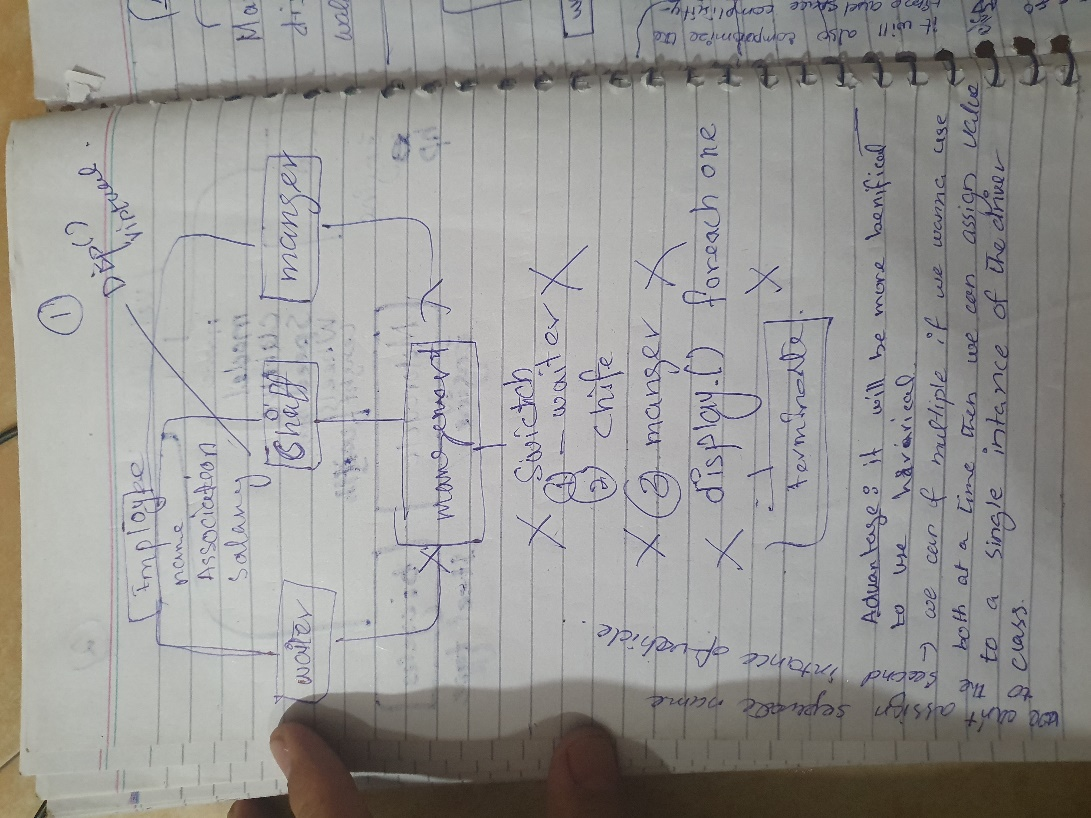 ①
Disp()
virtual
Employee
name
Association
salary
waiter
Shaff
manger
management
X Swictch
① — waiter X
② chife
X ③ manger X
X display() foreach one
X
terminate.
Advantages it will be more benifical
to use
second → we can if multiple if we wanna use
the both at a time then we can assign value
to a single intance of the driver
class.
we can't assign seperate name
to intance of vehicle
it will also compromise the
time and space complixity.